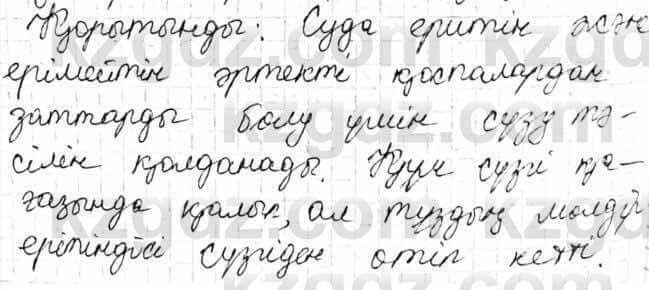 Қорытынды: Суда еритін және
ерімейтін әртекті қоспалардан
заттарды бөлу үшін сүзу тә-
сілін қолданады. Құм сүзгі қа-
ғазында қалып, ал тұздың мөлдір
ерітіндісі сүзгіден өтіп кетті.